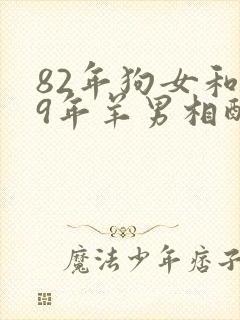 82年狗女和
9年羊男相配
魔法少年痞子